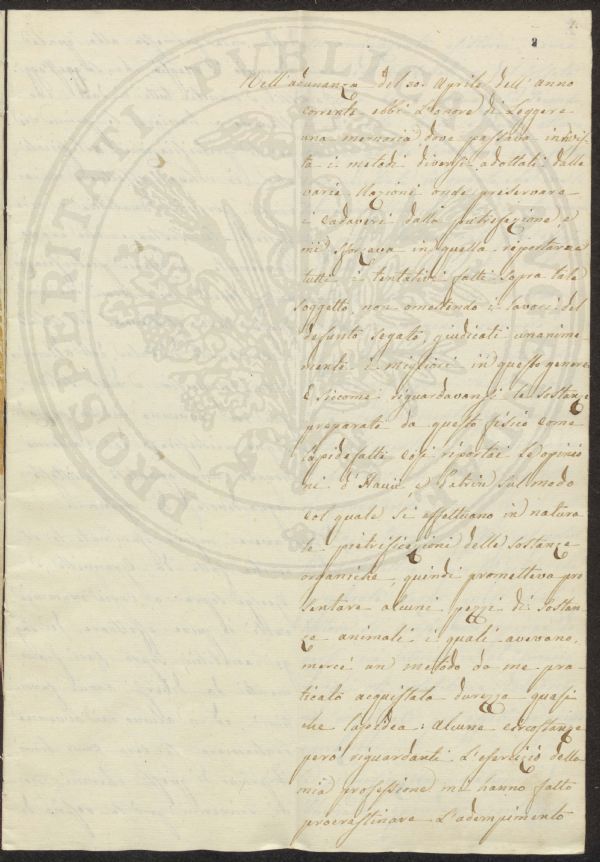 Nell'adunanza del 30. Aprile dell'anno
corrente ebbi l'onore di leggere
una memoria dove passava in rivis-
ta i metodi diversi adottati dalle
varie Nazioni onde preservare
i cadaveri dalla putrefazione, e
mi sforzava in quella riportare
tutti i tentativi fatti sopra tale
soggetto, non omettendo i lavori del
defunto Segato, giudicati unanime-
mente i migliori in questo genere
E siccome riguardavansi le sostanze
preparate da questo fisico come
lapidefatti così riportai le opinio
ni d'Haüi, e Patrin sul modo
col quale si effettuano in natura
le pietrificazioni delle sostanze
organiche, quindi prometteva pre
sentare alcuni pezzi di sostan
ze animali i quali avevano,
mercè un metodo da me pra-
ticato acquistata durezza quasi
che lapidea: alcune circostanze
però riguardanti l'esercizio della
mia professione mi hanno fatto
procrastinare l'adempimento
PROSPERITATI PUBLICAE